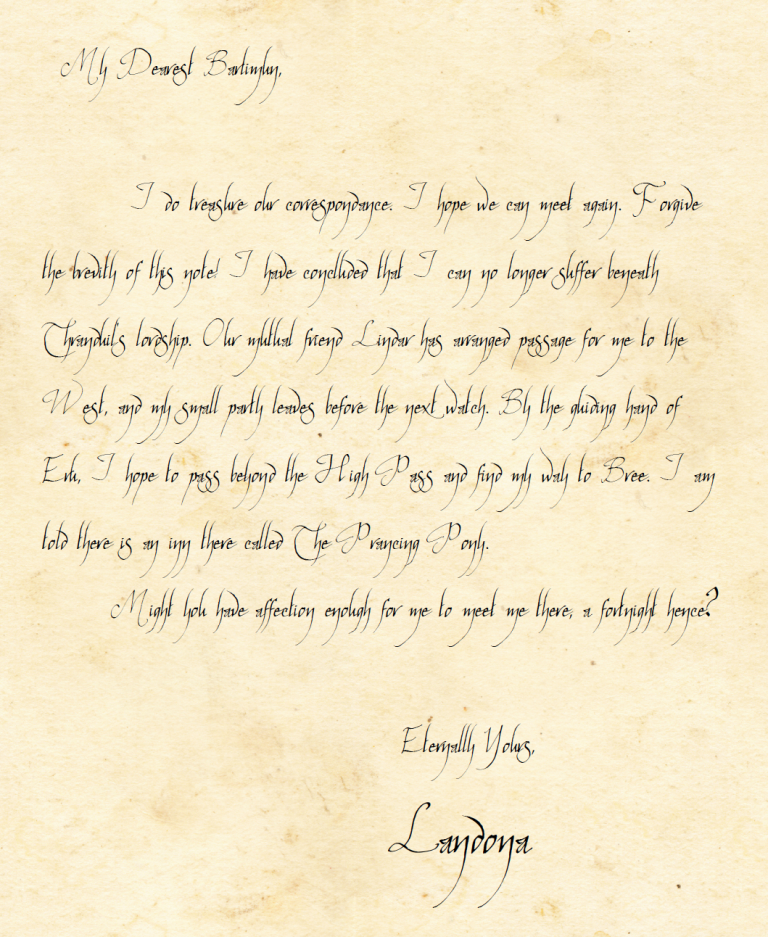 My Dearest
I do treasure our correspondance. I hope we can meet again. Forgive
the brevity of this note! I have concluded that I can no longer suffer beneath
Thranduil's lordship. Our mutual friend Lindar has arranged passage for me to the
West, and my small party leaves before the next watch. By the guiding hand of
Eru, I hope to pass beyond the High Pass and find my way to Bree. I am
told there is an inn there called The Prancing Pony.
Might you have affection enough for me to meet me there, a fortnight hence?
Eternally Yours,
Landona